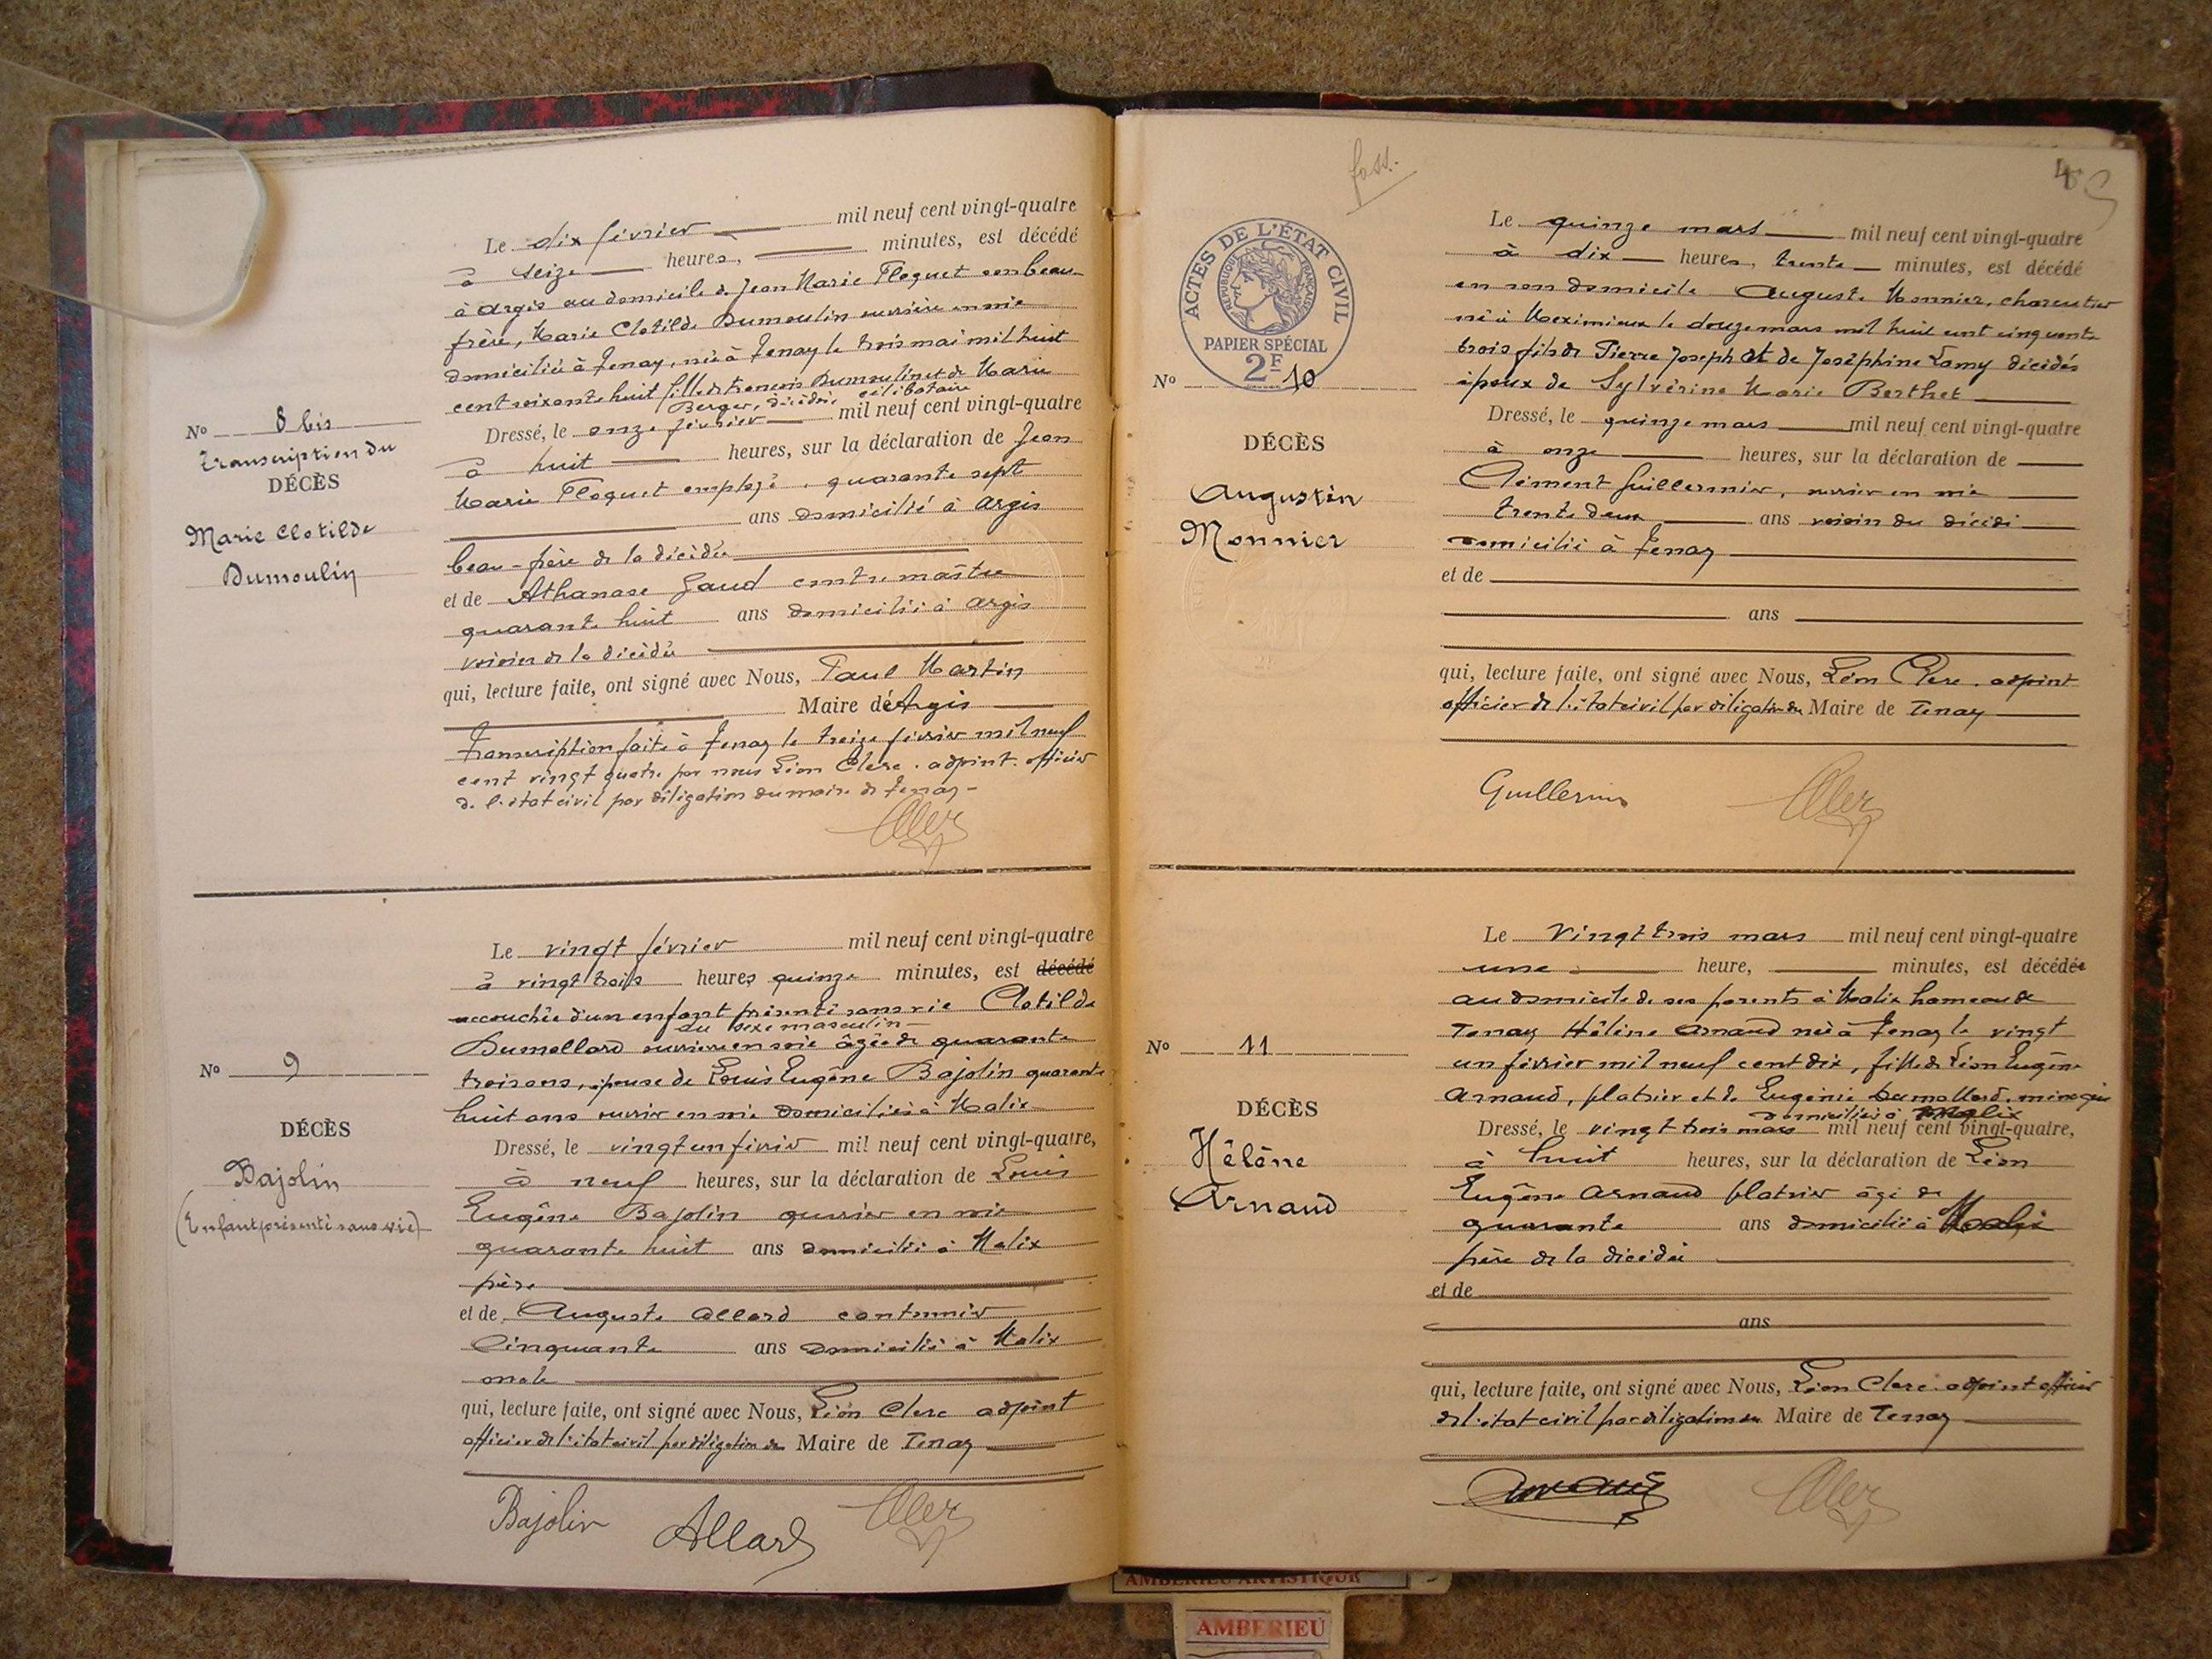 Le dix février mil neuf cent vingt-quatre
à seize heures, minutes, est décédé
à Argis au domicile de Jean Marie Floquet son beau
frère, Marie Clotilde Dumoulin ouvrière en soie
domiciliée à Tenay, née à Tenay le trois mai mil huit
cent soixante huit fille de François Dumoulin et de Marie
Berger, décédés célibataire
No 8 bis
transcription du
DÉCÈS
Marie Clotilde
Dumoulin
Dressé, le onze février mil neuf cent vingt-quatre
à huit heures, sur la déclaration de Jean
Marie Floquet employé, quarante sept
ans domicilié à Argis
beau-frère de la décédée
et de Athanase Gaud contremaître
quarante huit ans domicilié à Argis
voisin de la décédée
qui, lecture faite, ont signé avec Nous, Paul Martin
Maire d'Argis
Transcription faite à Tenay le treize février mil neuf
cent vingt quatre par nous Léon Clerc, adjoint officier
de l'état civil par délégation du maire de Tenay
Le vingt février mil neuf cent vingt-quatre
à vingt trois heures quinze minutes, est décédé
accouchée d'un enfant présenté sans vie Clotilde
du sexe masculin
Dumollard ouvrière en soie âgée de quarante
trois ans, épouse de Louis Eugène Bajolin quarante
huit ans ouvrier en soie domiciliés à Malix
No 9
DÉCÈS
Bajolin
(Enfant présenté sans vie)
Dressé, le vingt un février mil neuf cent vingt-quatre,
à neuf heures, sur la déclaration de Louis
Eugène Bajolin ouvrier en soie
quarante huit ans domicilié à Malix
père
et de Auguste Allard cantonnier
cinquante ans domicilié à Malix
oncle
qui, lecture faite, ont signé avec Nous, Léon Clerc adjoint
officier de l'état civil par délégation du Maire de Tenay
Bajolin Allard Clerc
ACTES DE L'ÉTAT CIVIL
RÉPUBLIQUE FRANÇAISE
PAPIER SPÉCIAL
2F
Le quinze mars mil neuf cent vingt-quatre
à dix heures, trente minutes, est décédé
en son domicile Auguste Monnier, charcutier
né à Meximieux le douze mars mil huit cent cinquante
trois fils de Pierre Joseph et de Joséphine Lamy décédés
époux de Sylvérine Marie Berthet
No 10
DÉCÈS
Augustin
Monnier
Dressé, le quinze mars mil neuf cent vingt-quatre
à onze heures, sur la déclaration de
Clément Guillermier, ouvrier en soie
trente deux ans voisin du décédé
domicilié à Tenay
et de
ans
qui, lecture faite, ont signé avec Nous, Léon Clerc, adjoint
officier de l'état civil par délégation du Maire de Tenay
Clerc
Le vingt trois mars mil neuf cent vingt-quatre
une heure, minutes, est décédée
au domicile de ses parents à Malix hameau de
Tenay Hélène Arnaud née à Tenay le vingt
un février mil neuf cent dix, fille de Léon Eugène
Arnaud, platrier et de Eugénie Dumollard, ménagère
domiciliés à Malix
No 11
DÉCÈS
Hélène
Arnaud
Dressé, le vingt trois mars mil neuf cent vingt-quatre,
à huit heures, sur la déclaration de Léon
Eugène Arnaud platrier âgé de
quarante ans domicilié à Malix
père de la décédée
et de
ans
qui, lecture faite, ont signé avec Nous, Léon Clerc adjoint officier
de l'état civil par délégation du Maire de Tenay
Arnaud Clerc
AMBERIEU ARTISTIQUE
AMBERIEU